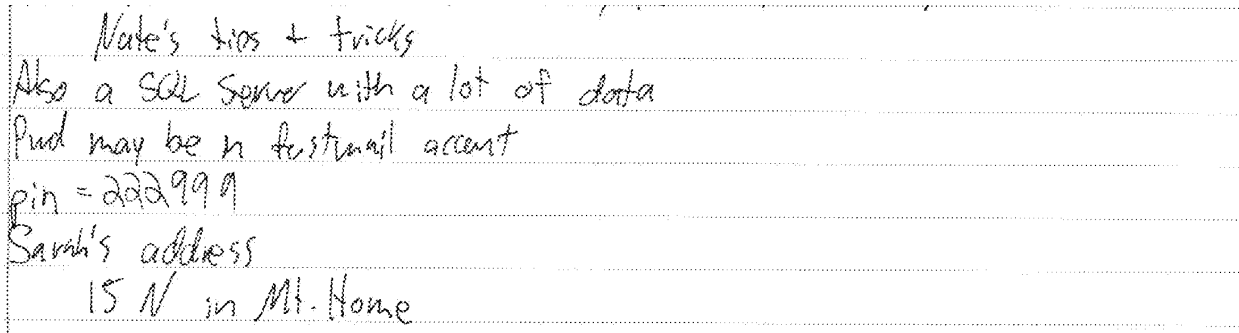 Nate's tips + tricks
Also a SQL Server with a lot of data
Pwd may be n fastmail account
pin = 222999
Sarah's address
15 N in Mt. Home